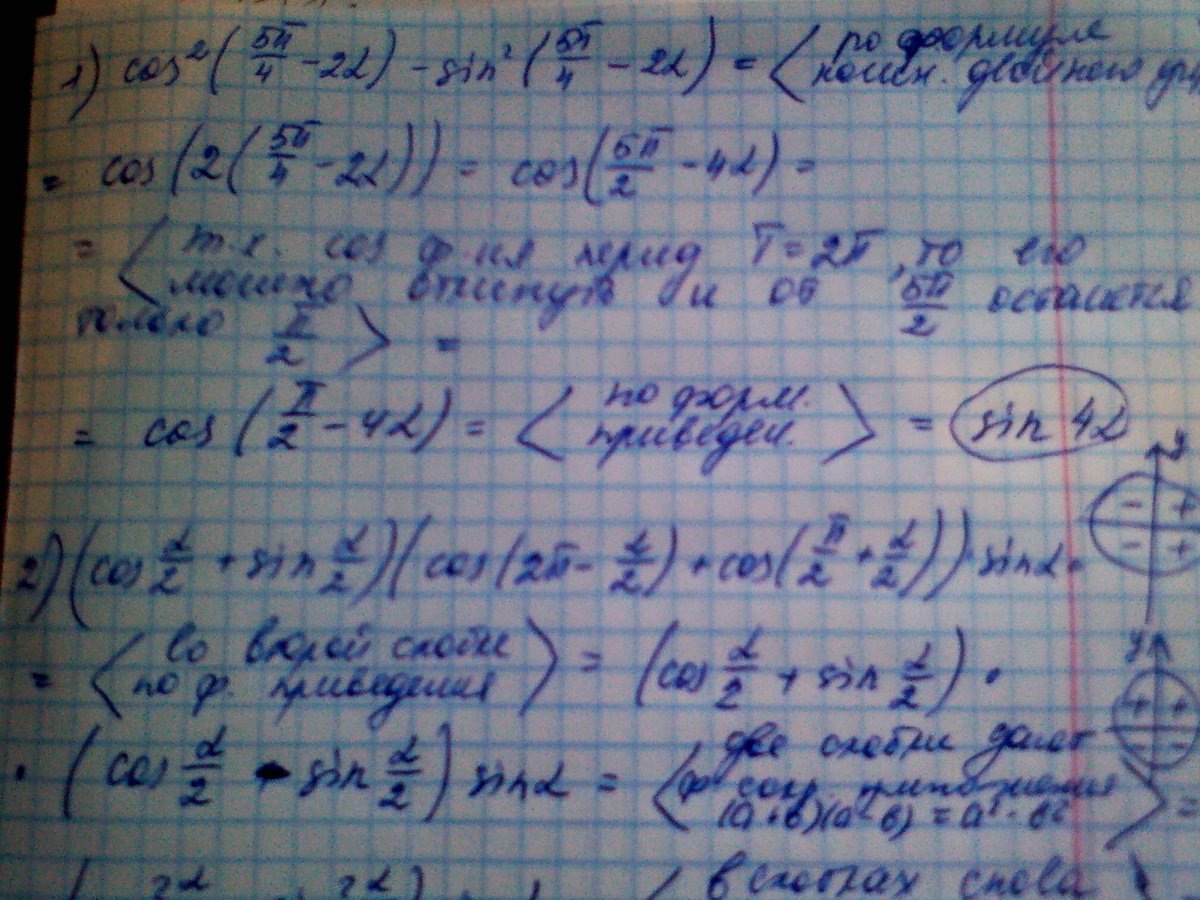 1) cos²(5π/4 - 2α) - sin²(5π/4 - 2α) = ⟨ по формуле
косин. двойного
= cos(2(5π/4 - 2α)) = cos(5π/2 - 4α) =
= ⟨ т.к. cos ф-ия период T = 2π, то его
можно откинуть и от 5π/2 остается
только π/2 ⟩ =
= cos(π/2 - 4α) = ⟨ по форм. приведен. ⟩ = sin 4α
y
- +
- +
2) (cos α/2 + sin α/2)(cos(2π - α/2) + cos(π/2 + α/2)) sin α =
= ⟨ во второй скобке по ф. приведения ⟩ = (cos α/2 + sin α/2) ·
y
+ +
- -
· (cos α/2 - sin α/2) sin α = ⟨ две скобки дают
ф сокр. умножения
(a+b)(a-b) = a² - b² ⟩ =
в скобках снова